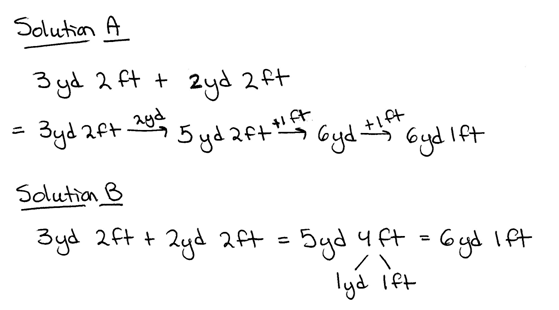 Solution A
3yd 2ft + 2yd 2ft
= 3yd 2ft 2yd→ 5yd 2ft +1ft→ 6yd +1ft→ 6yd 1ft
Solution B
3yd 2ft + 2yd 2ft = 5yd 4ft = 6yd 1ft
1yd 1ft